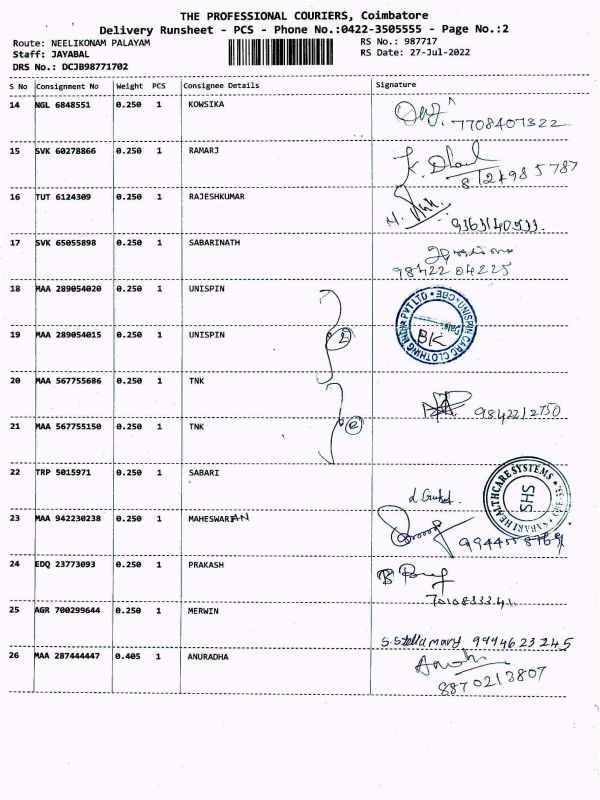 THE PROFESSIONAL COURIERS, Coimbatore
Delivery Runsheet - PCS - Phone No.:0422-3505555 - Page No.:2
Route: NEELIKONAM PALAYAM RS No.: 987717
Staff: JAYABAL RS Date: 27-Jul-2022
DRS No.: DCJB98771702
S No Consignment No Weight PCS Consignee Details Signature
14 NGL 6848551 0.250 1 KOWSIKA
7708407322
15 SVK 60278866 0.250 1 RAMARJ
K. 
16 TUT 6124309 0.250 1 RAJESHKUMAR
17 SVK 65055898 0.250 1 SABARINATH
98422 04225
18 MAA 289054020 0.250 1 UNISPIN
UNISPIN CARC CLOTHING PVT LTD CBE
BK
19 MAA 289054015 0.250 1 UNISPIN
2
20 MAA 567755686 0.250 1 TNK
9842212750
21 MAA 567755150 0.250 1 TNK
2
22 TRP 5015971 0.250 1 SABARI
SABARI HEALTHCARE SYSTEMS
SHS
23 MAA 942230238 0.250 1 MAHESWARIAN
24 EDQ 23773093 0.250 1 PRAKASH
25 AGR 700299644 0.250 1 MERWIN
S.Stella mary 9994623245
26 MAA 287444447 0.405 1 ANURADHA
8870213807